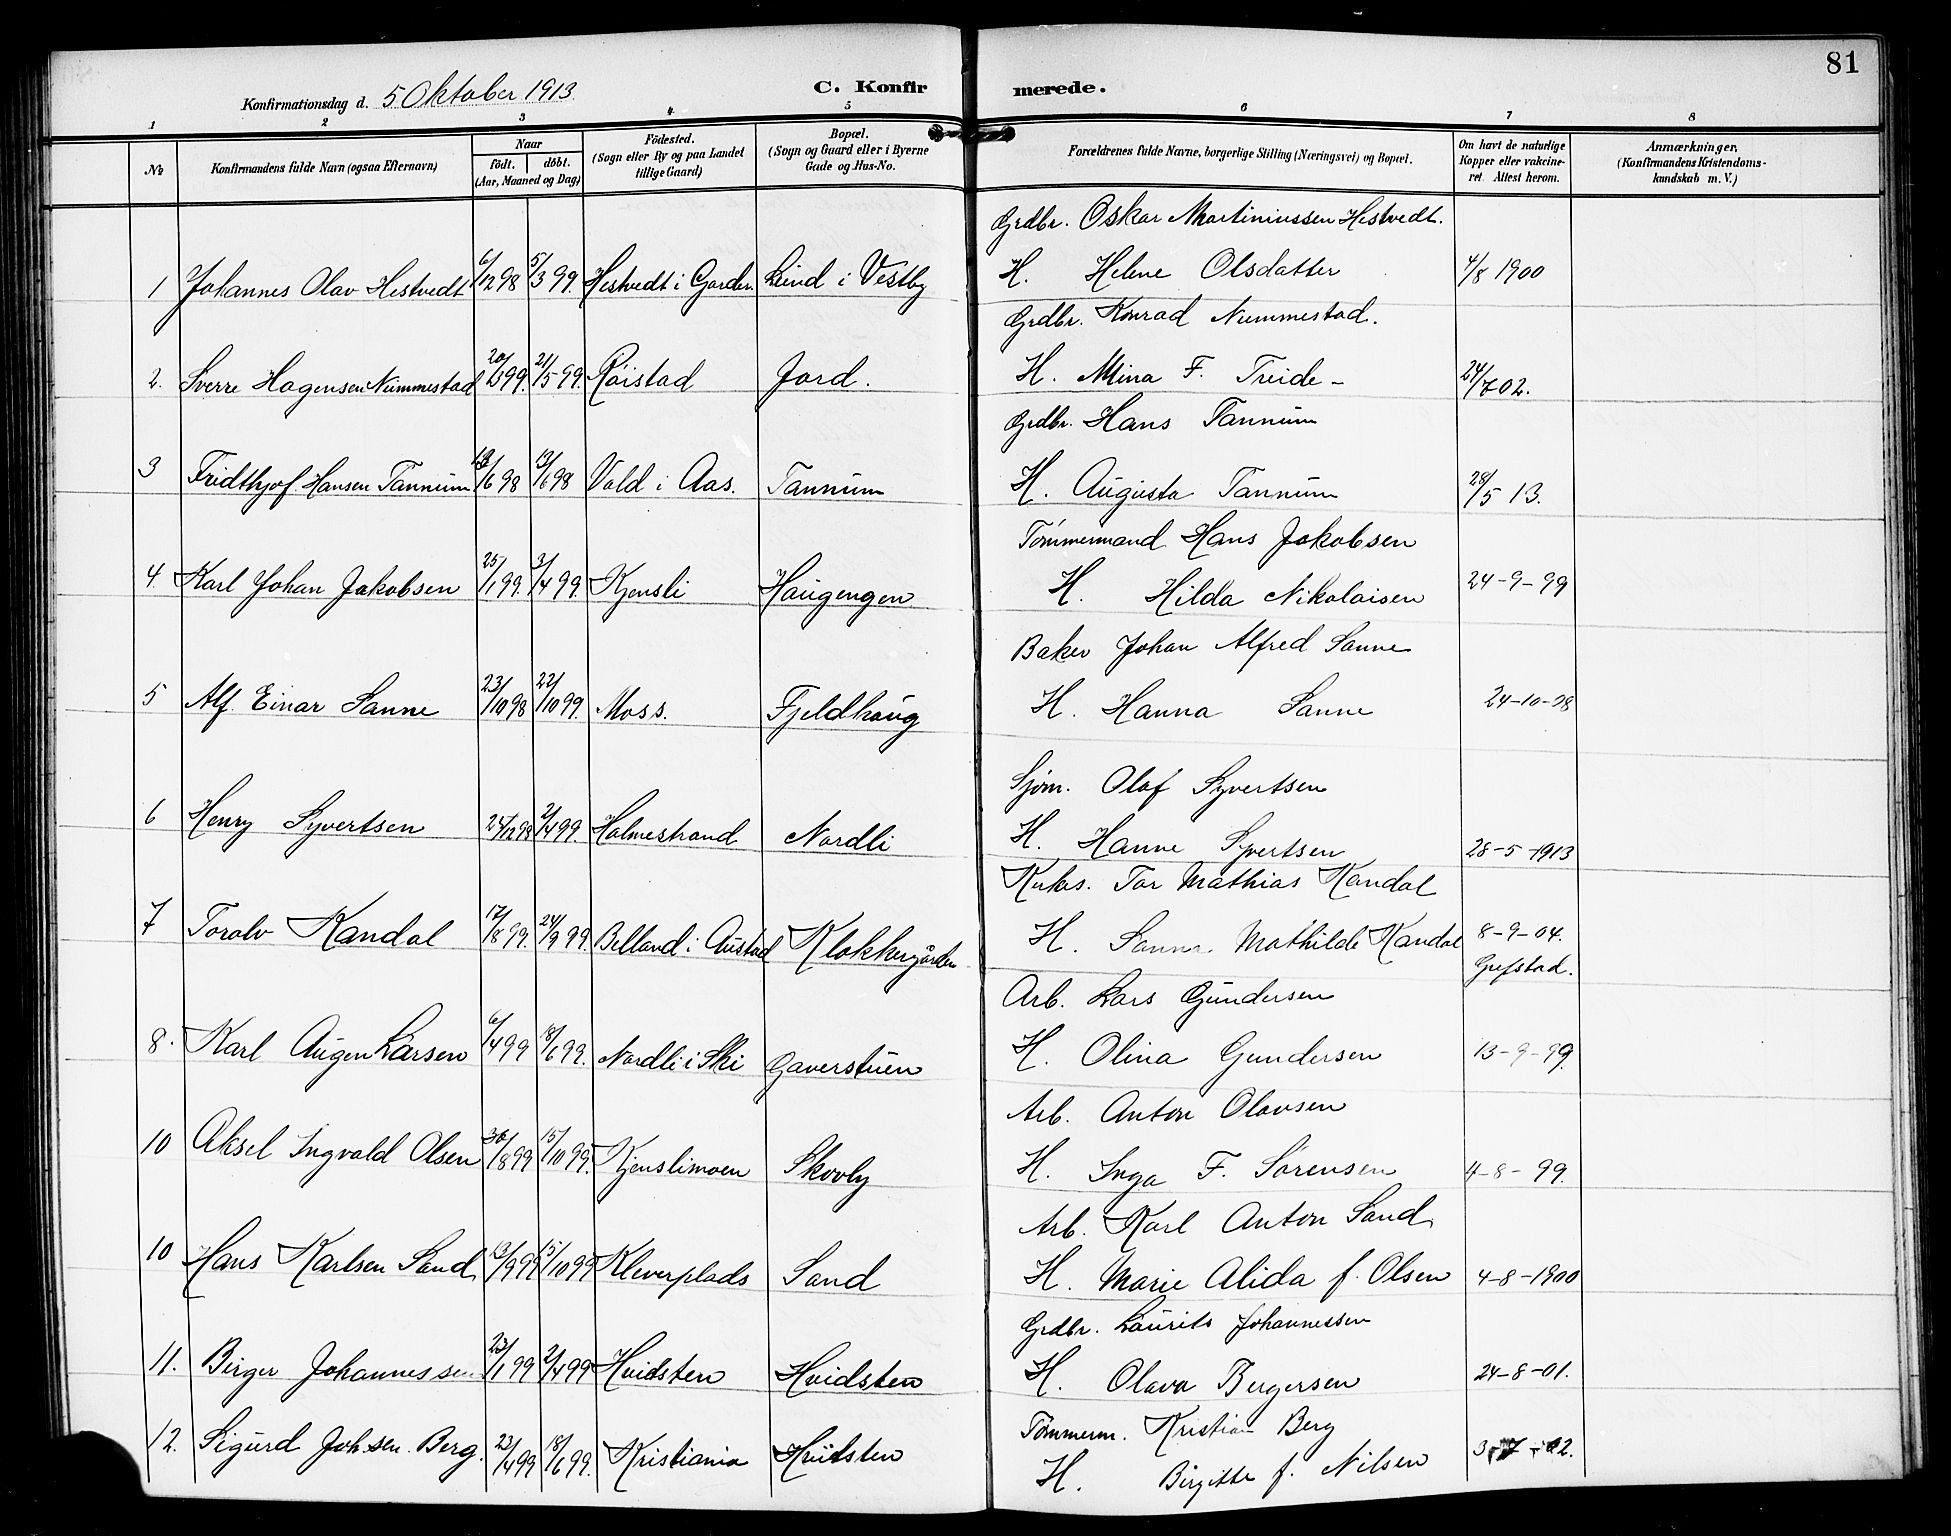 81
Konfirmationsdag d. 5 Oktober 1913.
C. Konfirmerede.
1 2 3 4 5 6 7 8
No
Konfirmandens fulde Navn (ogsaa Efternavn)
Naar
födt. döbt.
(Aar, Maaned og Dag)
Födested.
(Sogn eller By og paa Landet
tillige Gaard)
Bopæl.
(Sogn og Gaard eller i Byerne
Gade og Hus-No.
Forældrenes fulde Navne, borgerlige Stilling (Næringsvei) og Bopæl.
Om havt de naturlige
Kopper eller vakcine-
ret Attest herom.
Anmærkninger.
(Konfirmandens Kristendoms-
kundskab m. V.)
Grdbr. Oskar Martiniussen Hestvedt.
1 Johannes Olav Hestvedt 6/12 98 5/3 99. Hestvedt i Garder. Lund i Vestby H. Helene Olsdatter 4/8 1900
Grdbr. Konrad Nummestad.
2. Sverre Hagensen Nummestad 20/3 99. 21/5 99. Röistad Jord. H. Mina F. Treide - 24/7 02.
Grdbr. Hans Tannum
3 Fridthjof Hansen Tannum /6 98 13/6 98 Vold i Aas. Tannum H. Augusta Tannum 28/5 13.
Tömmermand Hans Jakobsen
4. Karl Johan Jakobsen 25/1 99. 3/4 99. Kjensli Haugengen H. Hilda Nikolaisen 24-9-99
Baker Johan Alfred Sanne
5 Alf. Einar Sanne 23/10 98 22/10 99. Moss. Fjeldhaug H. Hanna Sanne 24-10-98
Sjöm. Olaf Syvertsen
6 Henry Syvertsen 24/12 98 2/4 99. Holmestrand Nordli H. Hanne Syvertsen 28-5-1913
Tor Mathias Kandal
7 Toralv Kandal 17/8 99. 24/9 99. Belland i Austad Klokkergården H. Sanna Mathilde Kandal 8-9-04.
Grefstad.
Arb. Lars Gundersen
8. Karl Augen Larsen 6/4 99 18/6 99. Nordli i Ski Gaverstuen H. Olina Gundersen 13-9-99.
Arb. Anton Olavsen
10 Aksel Ingvald Olsen 30/8 99 15/10 99. Kjenslimoen Skovly H. Inga F. Sörensen 4-8-99.
Arb. Karl Anton Sand
10 Hans Karlsen Sand 13/9 99 15/10 99 Kleverplads Sand H. Marie Alida f. Olsen 4-8-1900
Grdbr. Laurits Johannessen
11. Birger Johannessen 23/1 99 2/4 99 Hvidsten Hvidsten H. Olava Bergersen 24-8-01.
Tömmerm. Kristian Berg
12. Sigurd Joh.sen. Berg. 23/4 99 18/6 99. Kristiania Hvitsten H. Birgitte f. Nilsen 3-7-02.